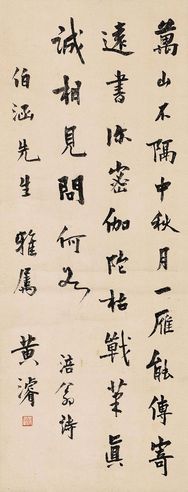 萬山不隔中秋月一雁能傳寄
遠書深密伽陀枯戰筆真
誠相見問何如 涪翁詩
伯涵先生 雅屬 黃濬